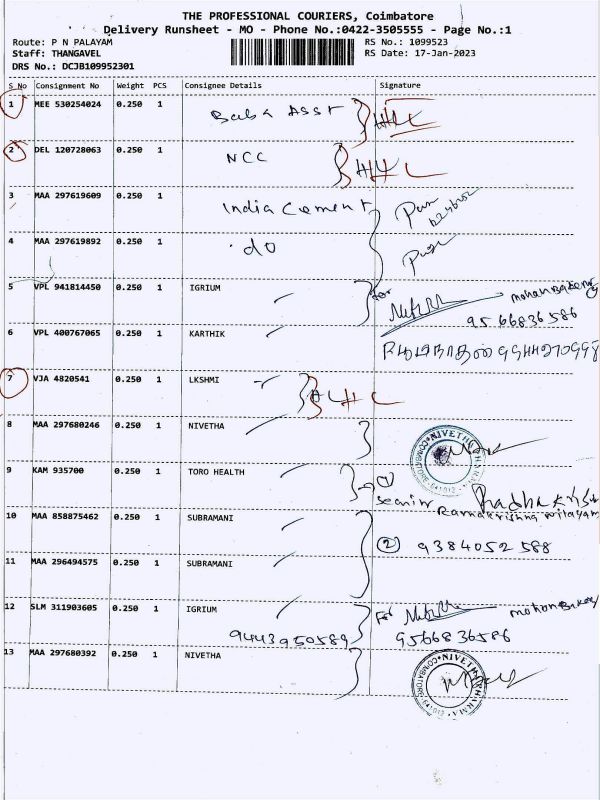 THE PROFESSIONAL COURIERS, Coimbatore
Delivery Runsheet - MO - Phone No.:0422-3505555 - Page No.:1
Route: P N PALAYAM RS No.: 1099523
Staff: THANGAVEL RS Date: 17-Jan-2023
DRS No.: DCJB109952301
S No Consignment No Weight PCS Consignee Details Signature
1 MEE 530254024 0.250 1 Baba Asst
2 DEL 120728063 0.250 1 NCC
3 MAA 297619609 0.250 1 India Cement
4 MAA 297619892 0.250 1 do
5 VPL 941814450 0.250 1 IGRIUM For mohan Bakery
9566836586
6 VPL 400767065 0.250 1 KARTHIK
7 VJA 4820541 0.250 1 LKSHMI
8 MAA 297680246 0.250 1 NIVETHA
9 KAM 935700 0.250 1 TORO HEALTH
10 MAA 858875462 0.250 1 SUBRAMANI
2 9384052588
11 MAA 296494575 0.250 1 SUBRAMANI
12 SLM 311903605 0.250 1 IGRIUM For mohan Bakery
9443950589 9566836586
13 MAA 297680392 0.250 1 NIVETHA